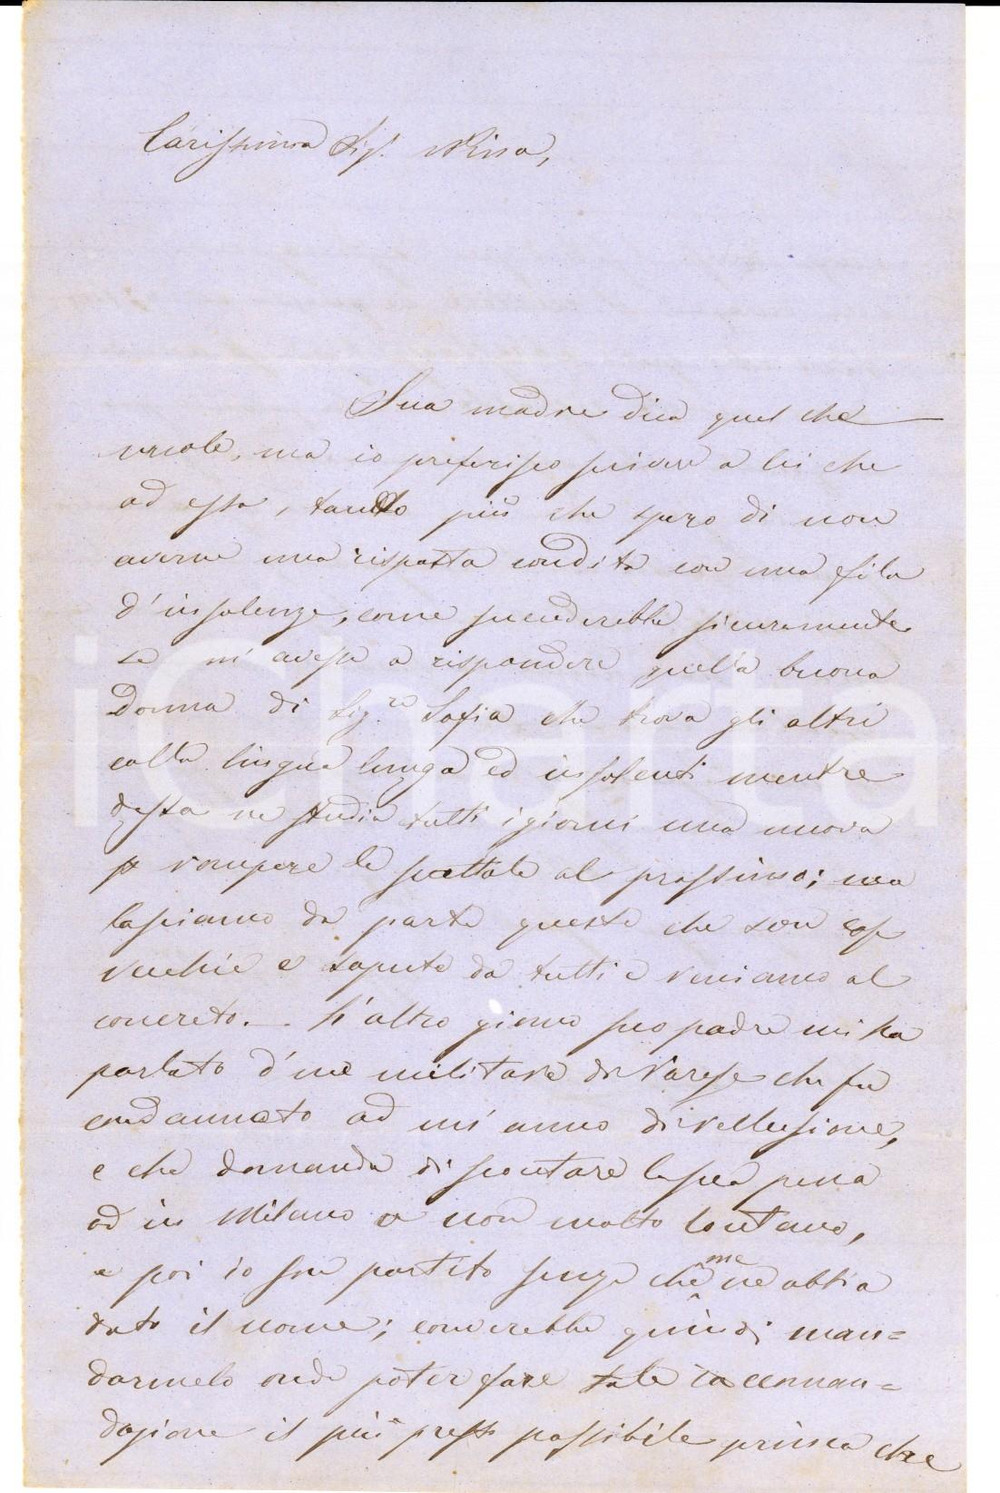 Carissima Sig.ª Nina,
Sua madre dica quel che
vuole, ma io preferisco scrivere a lei che
ad essa, tanto più che spero di non
averne una risposta condita con una fila
d'insolenze, come succederebbe sicuramente
se m'avesse a rispondere quella buona
Donna di Sig.ra Sofia che trova gli altri
colla lingua lunga ed insolenti mentre
dessa ne studia tutti i giorni una nuova
p rompere le scattole al prossimo; ma
lasciamo da parte queste che son cose
vecchie e sapute da tutti e veniamo al
concreto. — L'altro giorno suo padre mi ha
parlato d'un militare di Varese che fu
condannato ad un'anno di reclusione,
e che domanda di scontare la sua pena
od in Milano o non molto lontano,
e poi io son partito senza che me ne abbia
dato il nome; converebbe quindi man=
darmelo onde poter fare tale raccoman=
dazione il più presto possibile prima che
iCharta